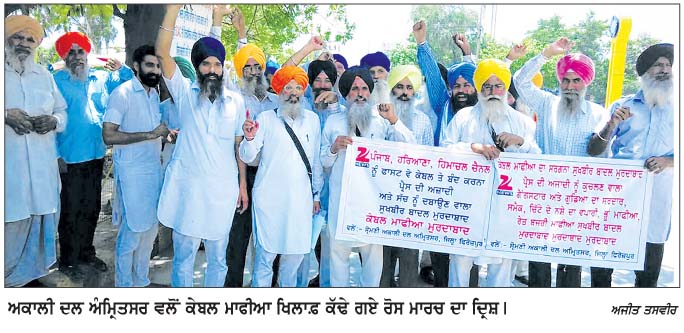 Z
NEWS
ਪੰਜਾਬ, ਹਰਿਆਣਾ, ਹਿਮਾਚਲ ਚੈਨਲ
ਨੂੰ ਫਾਸਟ ਵੇ ਕੇਬਲ ਤੇ ਬੰਦ ਕਰਨਾ
ਪ੍ਰੈਸ ਦੀ ਅਜ਼ਾਦੀ
ਅਤੇ ਸੱਚ ਨੂੰ ਦਬਾਉਣ ਵਾਲਾ
ਸੁਖਬੀਰ ਬਾਦਲ ਮੁਰਦਾਬਾਦ
ਕੇਬਲ ਮਾਫੀਆ ਮੁਰਦਾਬਾਦ
ਵਲੋਂ :- ਸ਼੍ਰੋਮਣੀ ਅਕਾਲੀ ਦਲ ਅੰਮ੍ਰਿਤਸਰ, ਜ਼ਿਲ੍ਹਾ ਫਿਰੋਜ਼ਪੁਰ
ਕੇਬਲ ਮਾਫੀਆ ਦਾ ਸਰਗਨਾ ਸੁਖਬੀਰ ਬਾਦਲ ਮੁਰਦਾਬਾਦ
Z
NEWS
ਪ੍ਰੈਸ ਦੀ ਅਜਾਦੀ ਨੂੰ ਕੁਚਲਣ ਵਾਲਾ
ਗੈਂਗਸਟਾਰ ਅਤੇ ਗੁੰਡਿਆ ਦਾ ਸਰਦਾਰ,
ਸਮੈਕ, ਚਿੱਟੇ ਦੇ ਨਸ਼ੇ ਦਾ ਵਪਾਰੀ, ਭੂ ਮਾਫੀਆ,
ਰੇਤ ਬਜਰੀ ਮਾਫੀਆ ਸੁਖਬੀਰ ਬਾਦਲ
ਮੁਰਦਾਬਾਦ ਮੁਰਦਾਬਾਦ ਮੁਰਦਾਬਾਦ
ਵਲੋਂ :- ਸ਼੍ਰੋਮਣੀ ਅਕਾਲੀ ਦਲ ਅੰਮ੍ਰਿਤਸਰ, ਜ਼ਿਲ੍ਹਾ ਫਿਰੋਜ਼ਪੁਰ
ਅਕਾਲੀ ਦਲ ਅੰਮ੍ਰਿਤਸਰ ਵਲੋਂ ਕੇਬਲ ਮਾਫੀਆ ਖਿਲਾਫ਼ ਕੱਢੇ ਗਏ ਰੋਸ ਮਾਰਚ ਦਾ ਦ੍ਰਿਸ਼।
ਅਜੀਤ ਤਸਵੀਰ